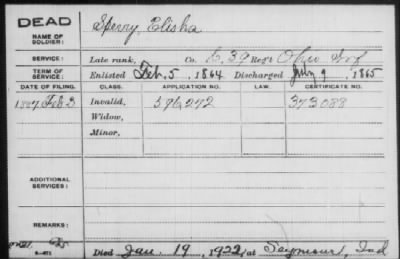 DEAD
NAME OF SOLDIER:
Sperry, Elisha
SERVICE:
Late rank, Co. C. 39 Reg't Ohio Inf
TERM OF SERVICE:
Enlisted Feb. 5, 1864 Discharged July 9, 1865
DATE OF FILING. CLASS. APPLICATION NO. LAW. CERTIFICATE NO.
1887 Feb 3 Invalid, 596272 373088
Widow,
Minor,
ADDITIONAL SERVICES:
REMARKS:
Died Jan. 19, 1922, at Seymour, Ind